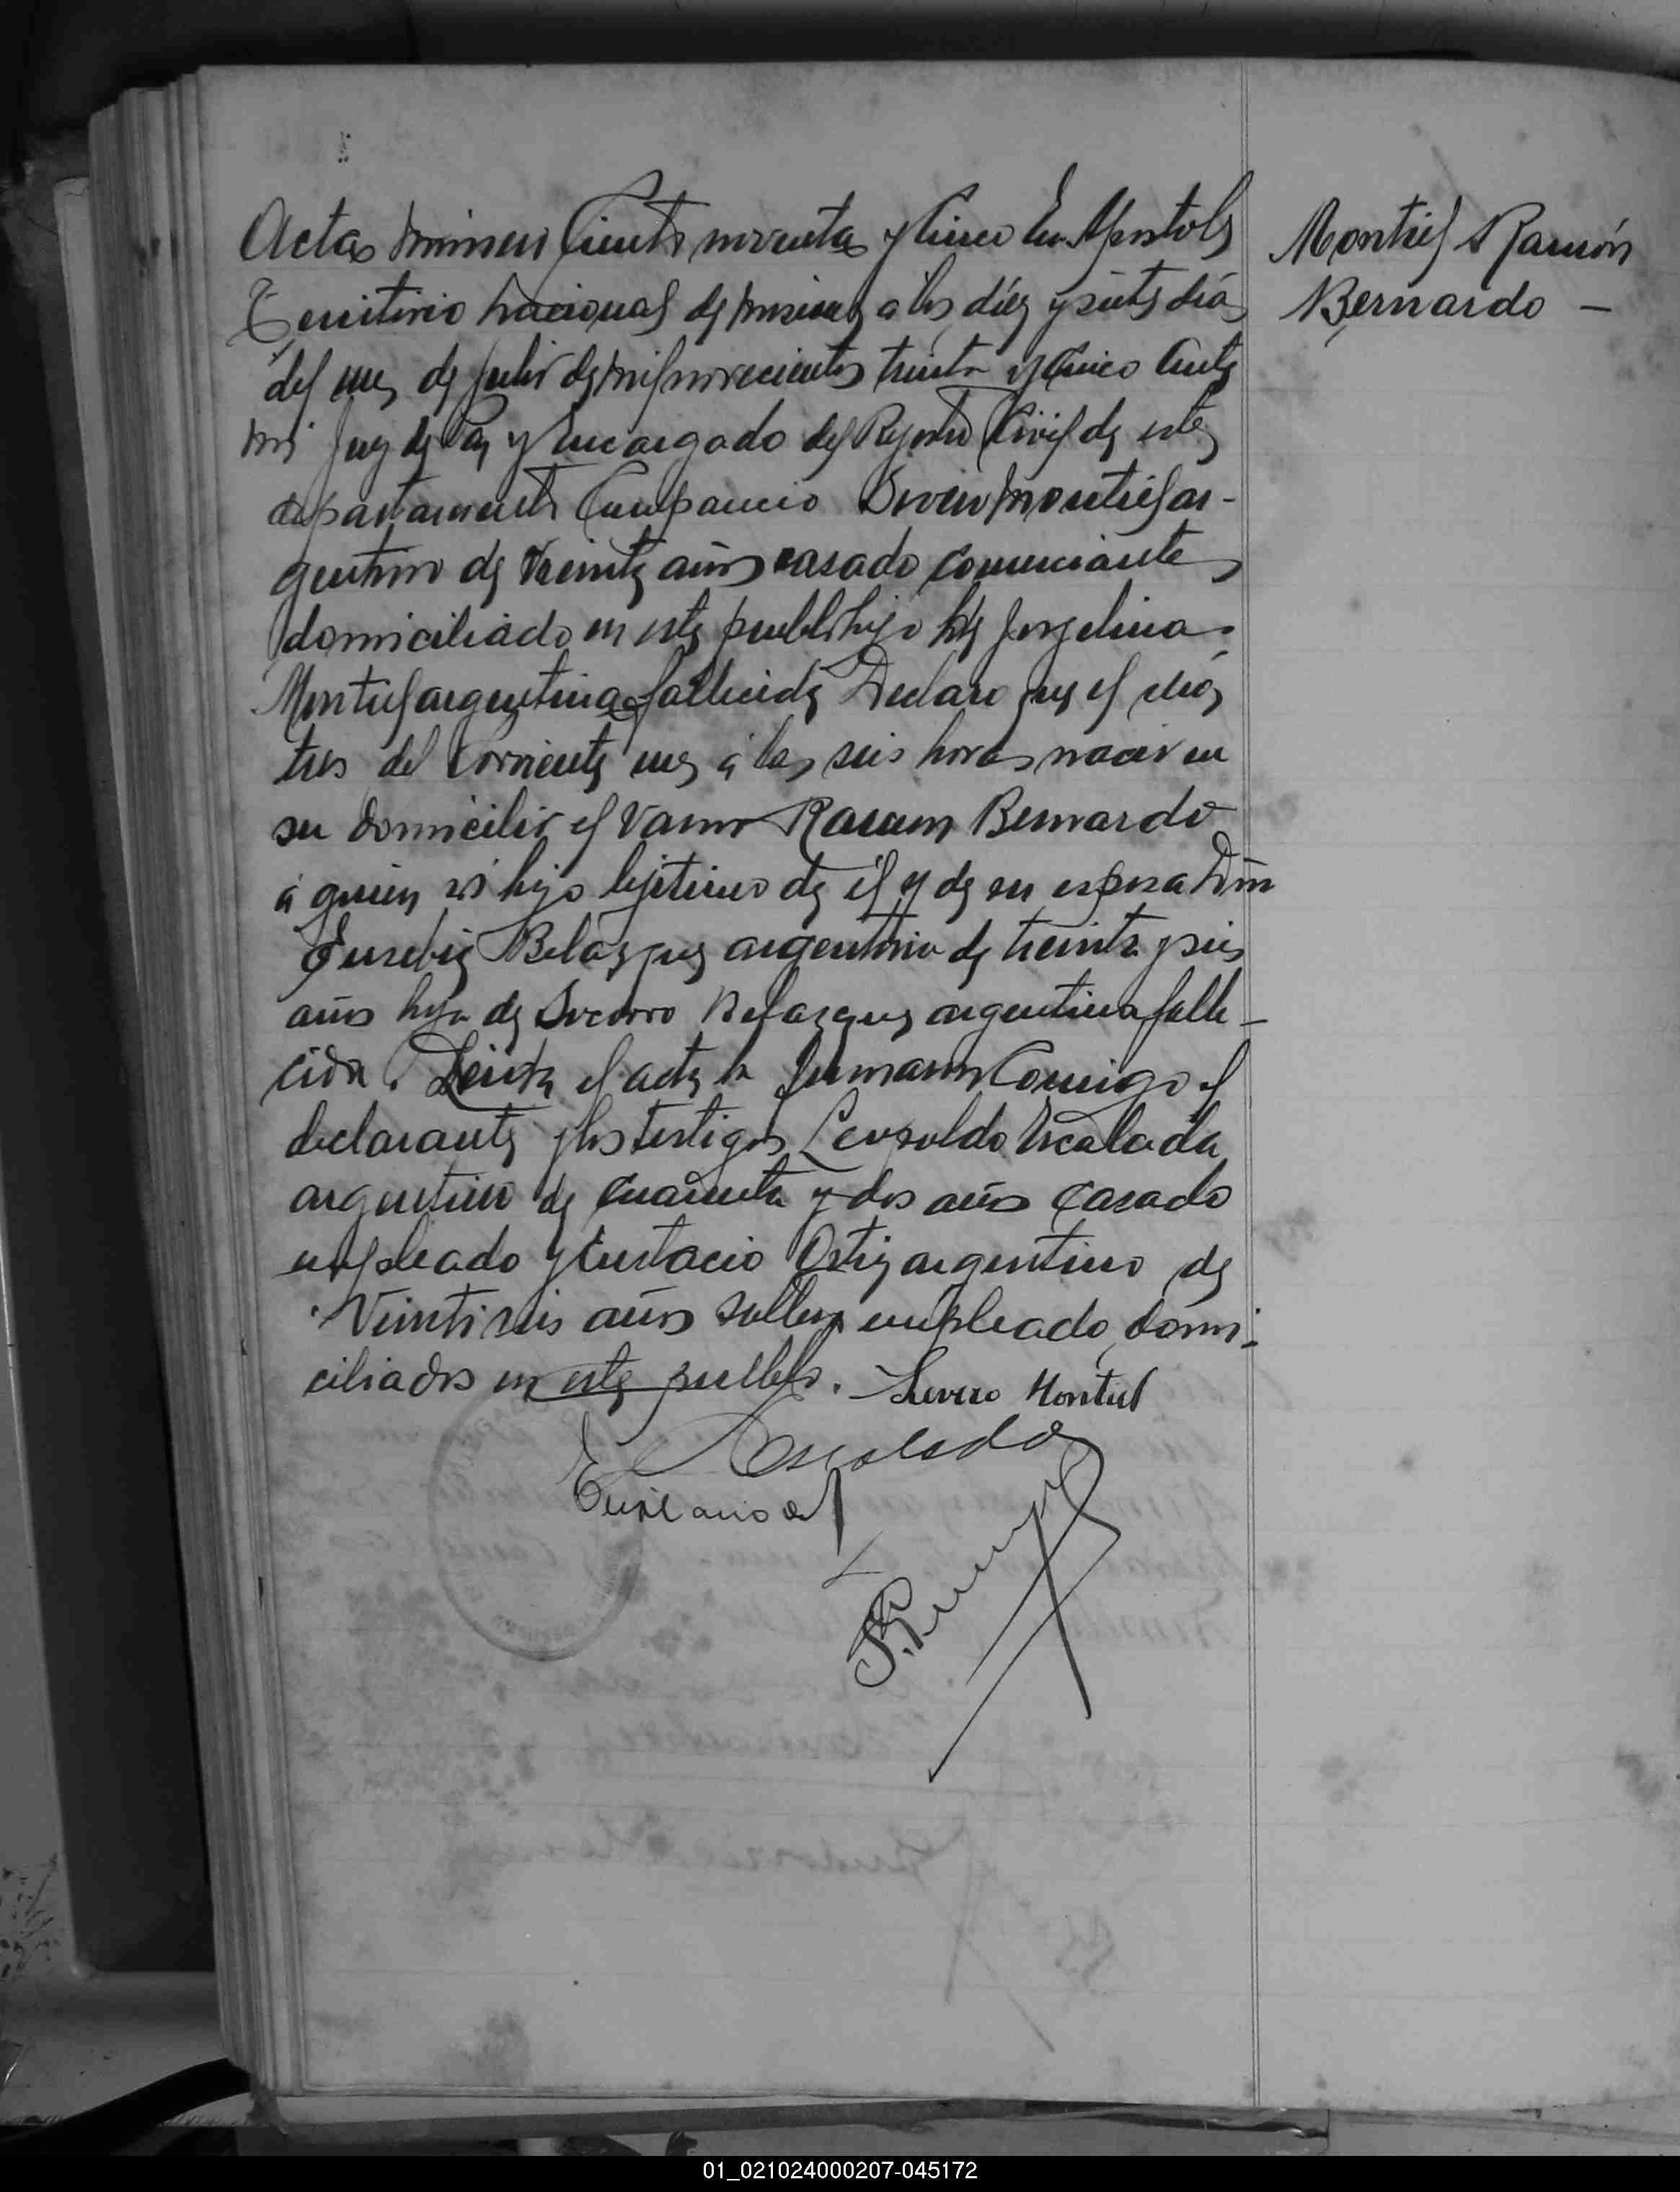 Acta número Ciento noventa y Cinco En Apostoles
Montiel Ramón
Territorio Nacional de Misiones a los díez y siete días
Bernardo —
del mes de Julio de mil novecientos treinta y Cinco Ante
mi Juez de Paz y Encargado del Registro Civil de este
departamento Compareció Severo Montiel ar-
gentino de veinte años casado comerciante
domiciliado en este pueblo hijo de Jorgelina
Montiel argentina fallecida Declaro que el día
tres del Corriente mes á las seis horas nació en
su domicilio el Varon Ramon Bernardo
á quien es hijo lejitimo de él y de su esposa Doña
Eusebia Belasques argentina de treinta y seis
años hija de Socorro Belasques argentina falle-
cida. Leida el acta la firmaron Comigo el
declarante y los testigos Leopoldo Escalada
argentino de cuarenta y dos años casado
empleado y Eustacio Ortiz argentino de
Veintiseis años soltero empleado, domi-
ciliados en este pueblo. Severo Montiel
Escalada
01_021024000207-045172